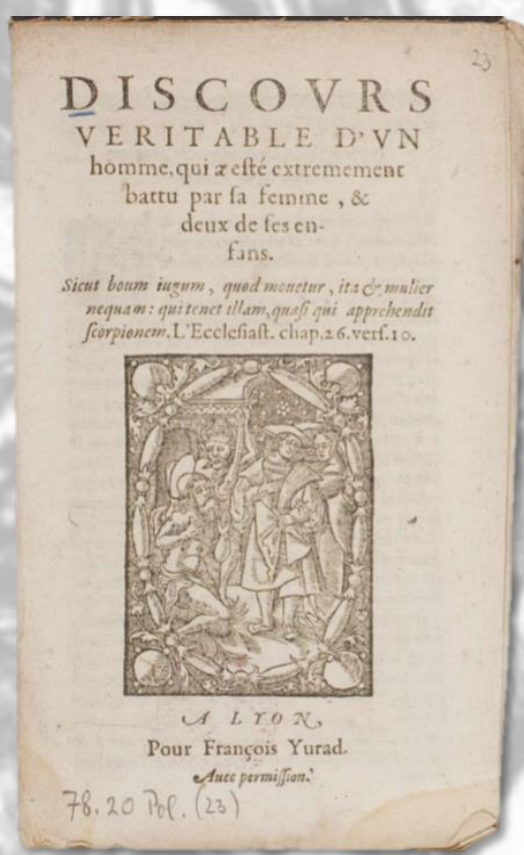 23
DISCOVRS
VERITABLE D'VN
homme, qui a esté extremement
battu par sa femme, &
deux de ses en-
fans.
Sicut boum iugum, quod mouetur, ita & mulier
nequam: qui tenet illam, quasi qui apprehendit
scorpionem. L'Ecclesiast. chap. 26. vers. 10.
A LYON,
Pour François Yurad.
Auec permission.
78.20 Pol. (23)